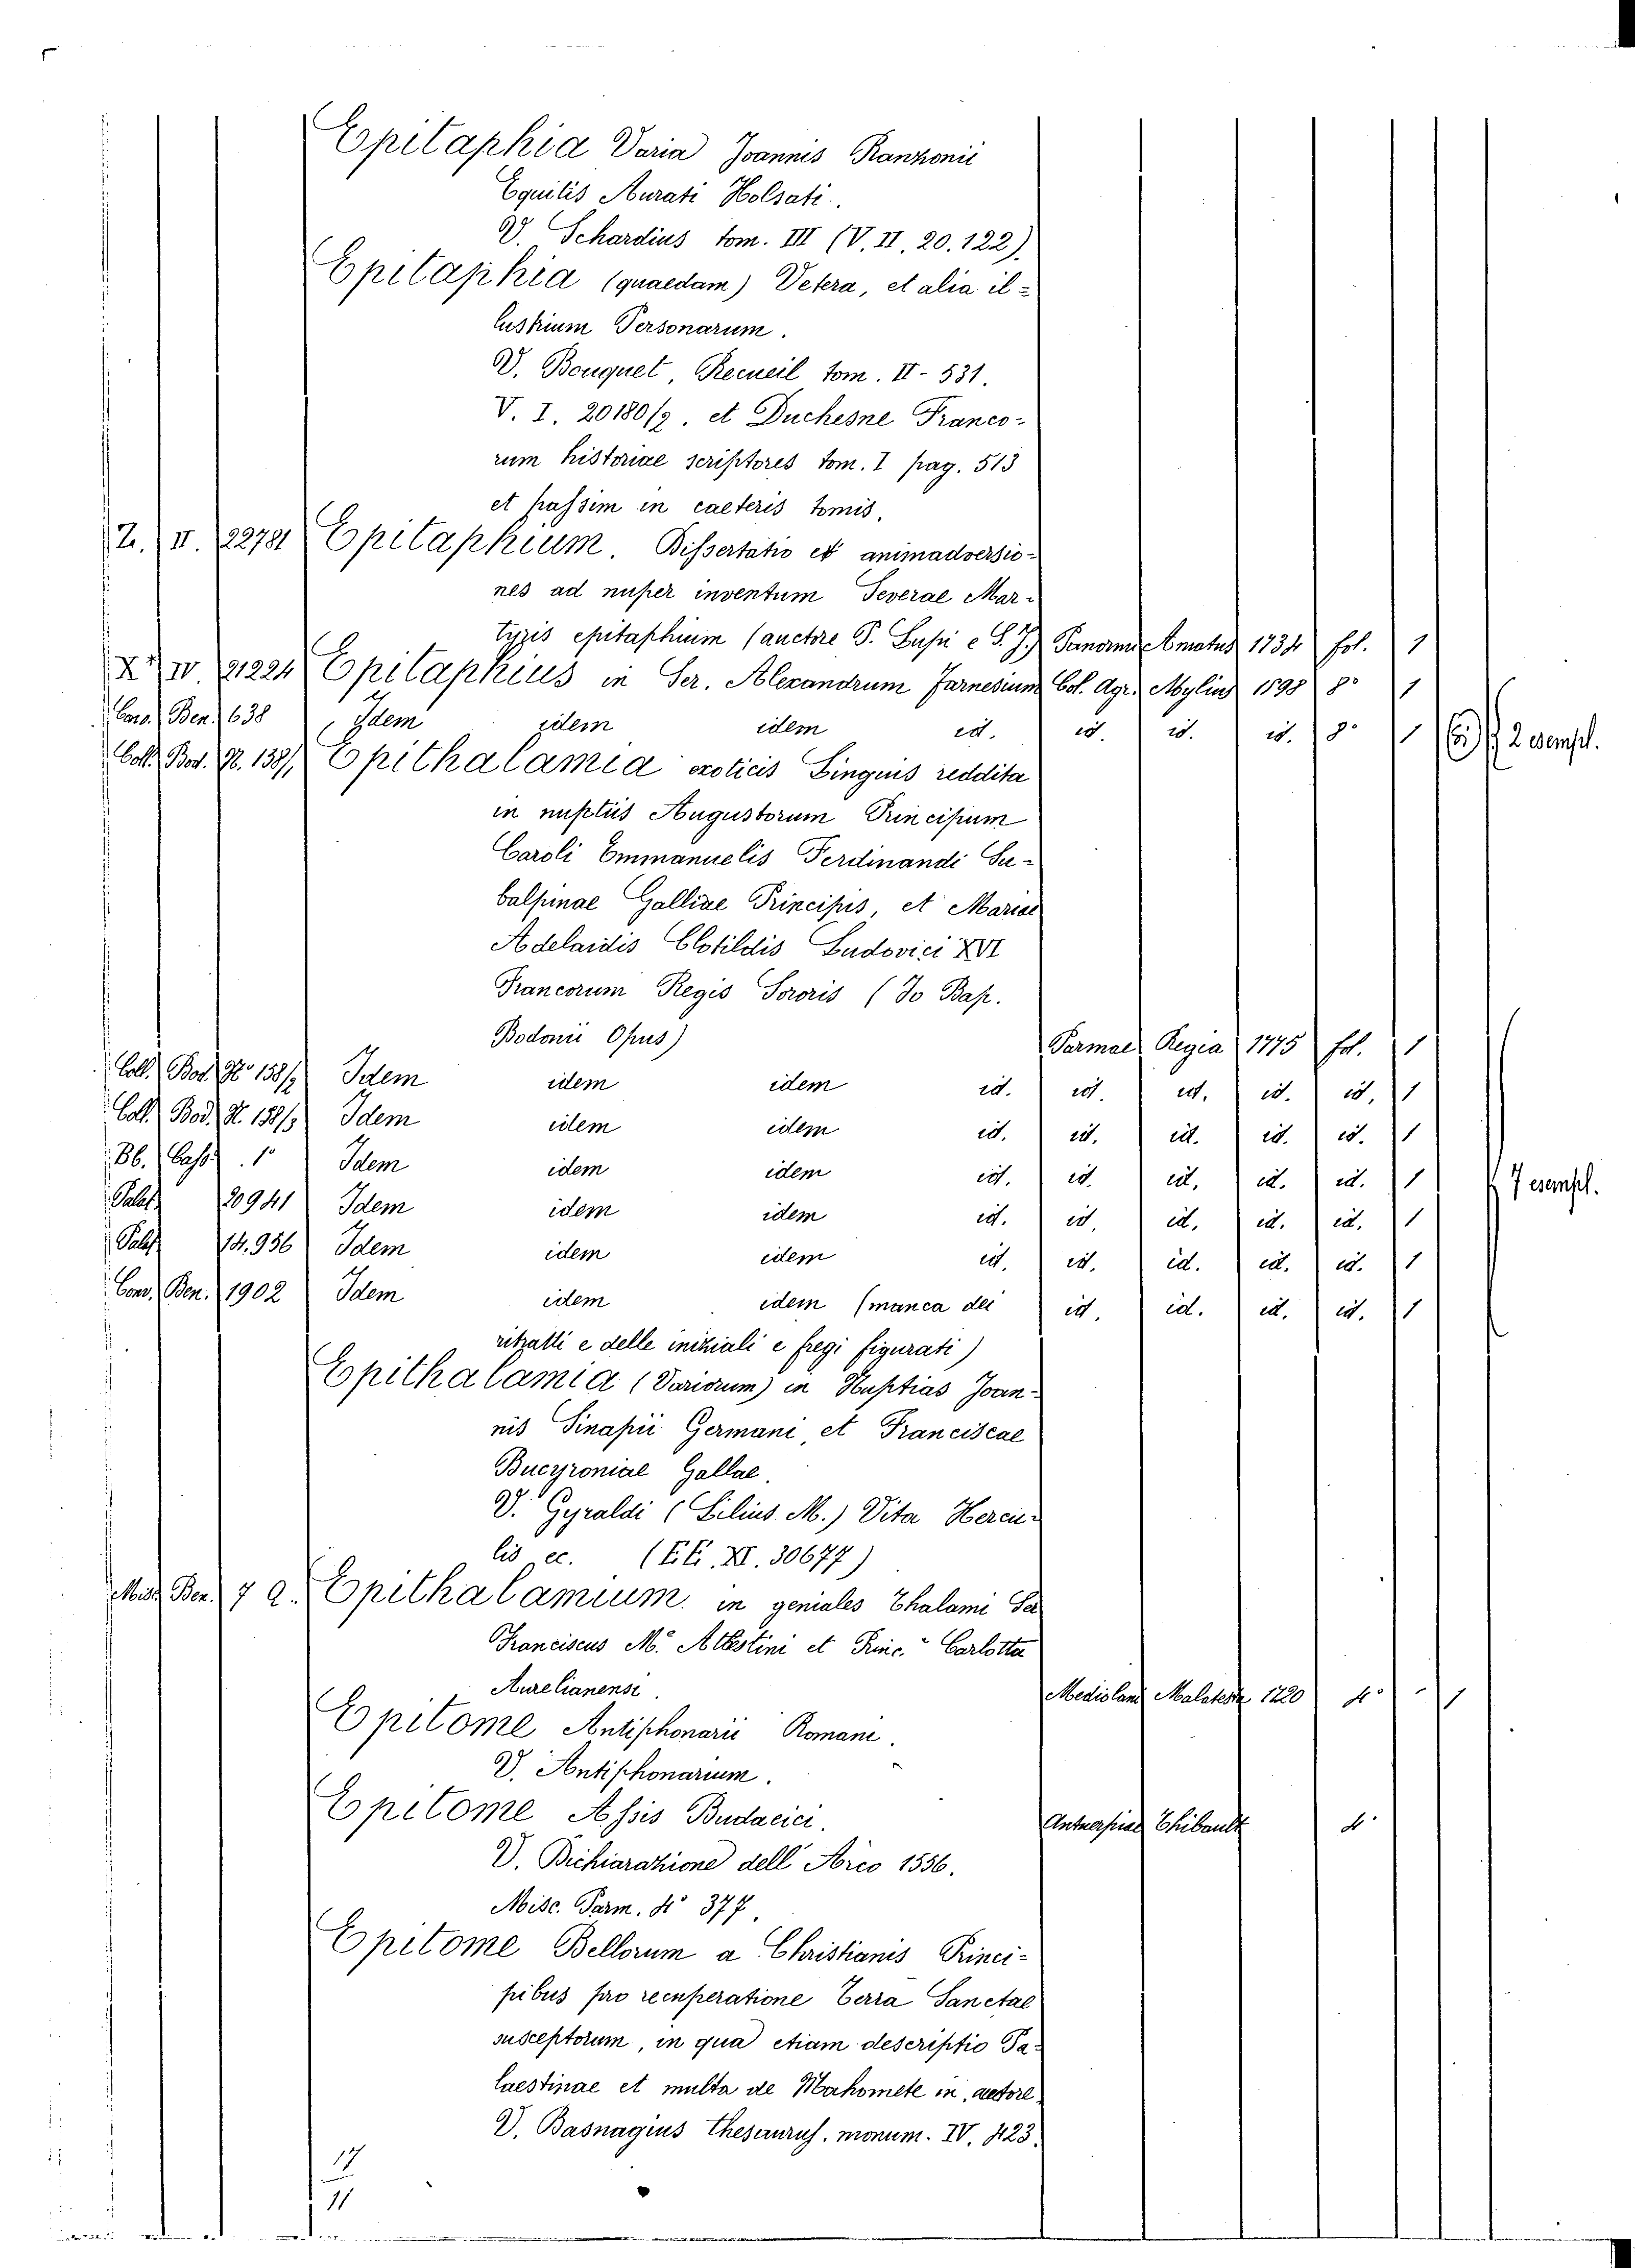 Epitaphia Varia Joannis Ranzonii
Equitis Aurati Holsati.
V. Schardius tom. III (V. II. 20.122).
Epitaphia (quaedam) Vetera, et alia il=
lustrium Personarum.
V. Bouquet, Recueil tom. II - 531.
V. I. 20180/2. et Duchesne Franco-
rum historiae scriptores tom. I pag. 513
et passim in caeteris tomis.
Z. II. 22781 Epitaphium. Dissertatio et animadversio-
nes ad nuper inventum Severae Mar-
tyris epitaphium (auctore P. Lupi e S. J.) Panormi Amatus 1734 fol. 1
IV. 21224 Epitaphius in Ser. Alexandrum Farnesium Col. Agr. Mylius 1598 8° 1
Ben. 638 Idem idem idem id. id. id. id. 8° 1 2 esempl.
Coll. Bod. N. 138/1 Epithalamia exoticis Linguis reddita
in nuptiis Augustorum Principum
Caroli Emmanuelis Ferdinandi Su-
balpinae Galliae Principis, et Mariae
Adelaidis Clotildis Ludovici XVI
Francorum Regis Sororis (Jo Bap.
Bodonii Opus) Parmae Regia 1775 fol. 1
Coll. Bod. N° 158/2 Idem idem idem id. id. id. id. id. 1
Coll. Bod. N. 158/3 Idem idem idem id. id. id. id. id. 1
Bb. Cass. 1° Idem idem idem id. id. id. id. id. 1 7 esempl.
Palat. 20941 Idem idem idem id. id. id. id. id. 1
Palat. 14.956 Idem idem idem id. id. id. id. id. 1
Conv. Ben. 1902 Idem idem idem (manca dei id. id. id. id. 1
ritratti e delle iniziali e fregi figurati)
Epithalamia (Variorum) in Nuptias Joan-
nis Sinapii Germani, et Franciscae
Bucyroniae Gallae.
V. Gyraldi (Lilius M.) Vita Hercu-
lis ec. XI. 30677)
Misc. Ben. 7 a. Epithalamium in geniales Thalami Ser
Franciscus M. Attestini et Princ. Carlotta
Aurelianensi. Mediolani Malatesta 1720 4° 1
Epitome Antiphonarii Romani.
V. Antiphonarium.
Epitome Assis Budaeici. Antuerpiae Thibault 4°
V. Dichiarazione dell' Arco 1556.
Misc. Parm. 4° 377.
Epitome Bellorum a Christianis Princi-
pibus pro recuperatione Terra Sanctae
susceptorum, in qua etiam descriptio Pa-
laestinae et multa de Mahomete in, autore.
V. Basnagius Thesaurus. monum. IV. 423.
17
11